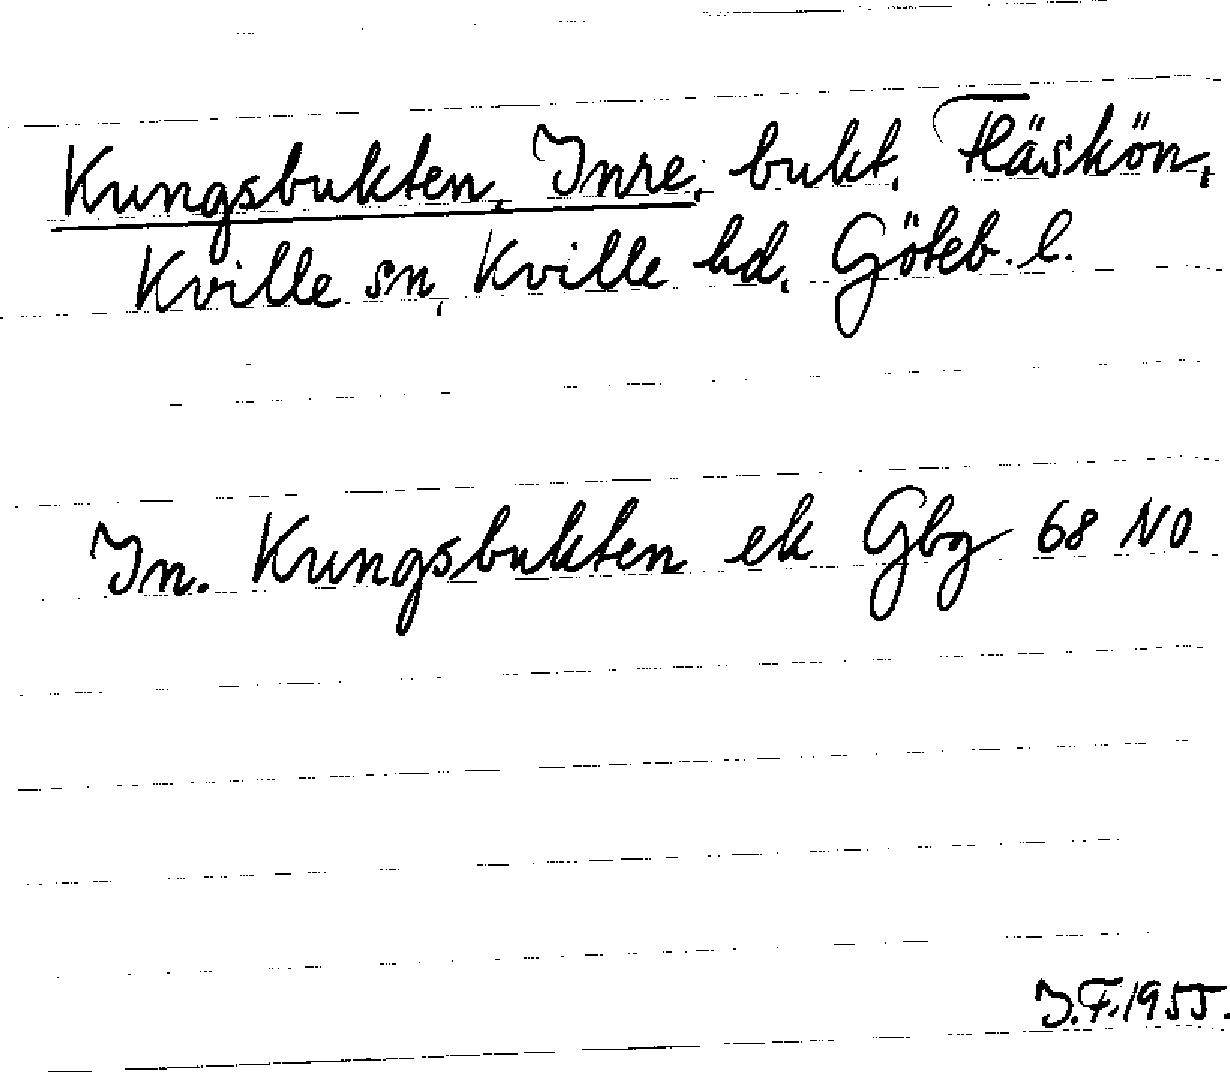 Kungsbukten, Inre, bukt, Fläskön,
Kville sn, Kville hd, Göteb. l.
In. Kungsbukten ek Gbg 68 NO
I.F. 1955.